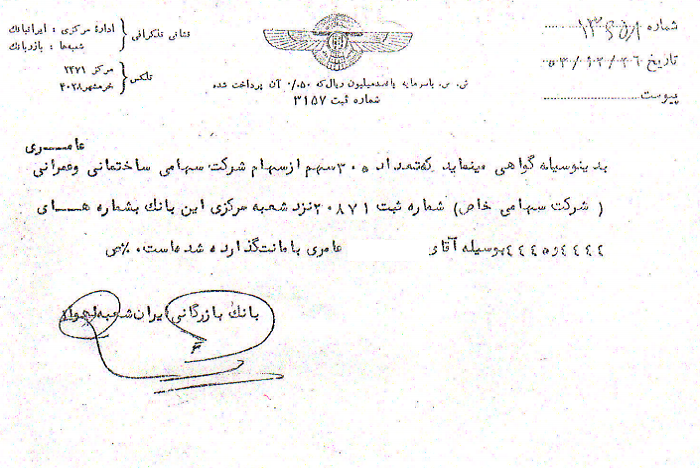 شماره ۱۳۶۵/۱
تاریخ ۵۳/۱۲/۲۶
پیوست
نشانی تلگرافی { ادارهٔ مرکزی : ایرانبانک
شعبه‌ها : بازربانک
تلکس { مرکز ۲۴۷۱
خرمشهر ۴۰۲۸
ش. س. باسرمایه پانصدمیلیون ریال که ۰/۵۰ آن پرداخت شده
شماره ثبت ۳۱۵۷
بدینوسیله گواهی مینماید که تعداد ۳۰۵ سهم از سهام شرکت سهامی ساختمانی وعمرانی عامری
( شرکت سهامی خاص) شماره ثبت ۲۰۸۷۱ نزد شعبه مرکزی این بانک بشماره های
۴۴۴۵و۴۴۴۴ بوسیله آقای عامری بامانت گذارده شده است.
بانک بازرگانی ایران شعبه اهواز